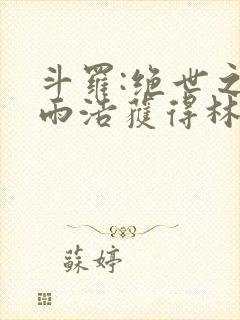 斗羅:绝世之
雨浩獲得林
蘇婷